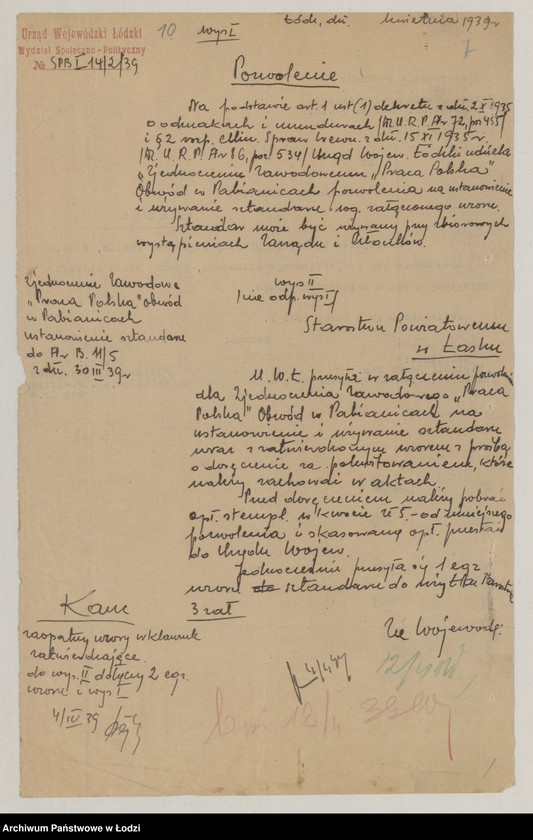 Łódź, dn. kwietnia 1939 r
Urząd Wojewódzki Łódzki
Wydział Społeczno-Polityczny
№ SPB I 14/2/39
10
wys I
7
Pozwolenie
Na podstawie art. 1 ust (1) dekretu z dn. 2 X 1935
o odznakach i mundurach /Dz. U. R. P. Nr 72, poz 455/
i § 2 rozp. Min. Spraw Wewn. z dn. 15 XI 1935 r.
/Dz. U. R. P. Nr 86, poz 534/ Urząd Wojew. Łódzki udziela
"Zjednoczeniu Zawodowemu "Praca Polska"
Obwód w Pabianicach pozwolenia na ustanowienie
i używanie sztandaru wg. załączonego wzoru.
Sztandar może być używany przy zbiorowych
wystąpieniach Zarządu i Członków.
Zjednoczenie Zawodowe
"Praca Polska" Obwód
w Pabianicach
ustanowienie sztandaru
do Nr B. 11/5
z dn. 30 III 39 r
wys II
/nie odp. wys I/
Starostwu Powiatowemu
w Łasku
U. W. Ł. przesyła w załączeniu
dla Zjednoczenia Zawodowego "Praca
Polska" Obwód w Pabianicach na
ustanowienie i używanie sztandaru
wraz z zatwierdzonym wzorem z prośbą
o doręczenie za pokwitowaniem, które
należy zachować w aktach.
Przed doręczeniem należy pobrać
opł. stempl. w kwocie zł 5.- od niniejszego
pozwolenia i skasowaną opł. przesłać
do Urzędu Wojew.
Jednocześnie przesyła się 1 egz
wzoru do sztandaru do użytku Starostwa
3 zał
Za Wojewodę:
Kanc
zaopatrzy wzory w klauzulę
zatwierdzającą.
do wys. II dołączy 2 egz.
wzoru i wys I
4/IV 39
4/4
12/4
Archiwum Państwowe w Łodzi